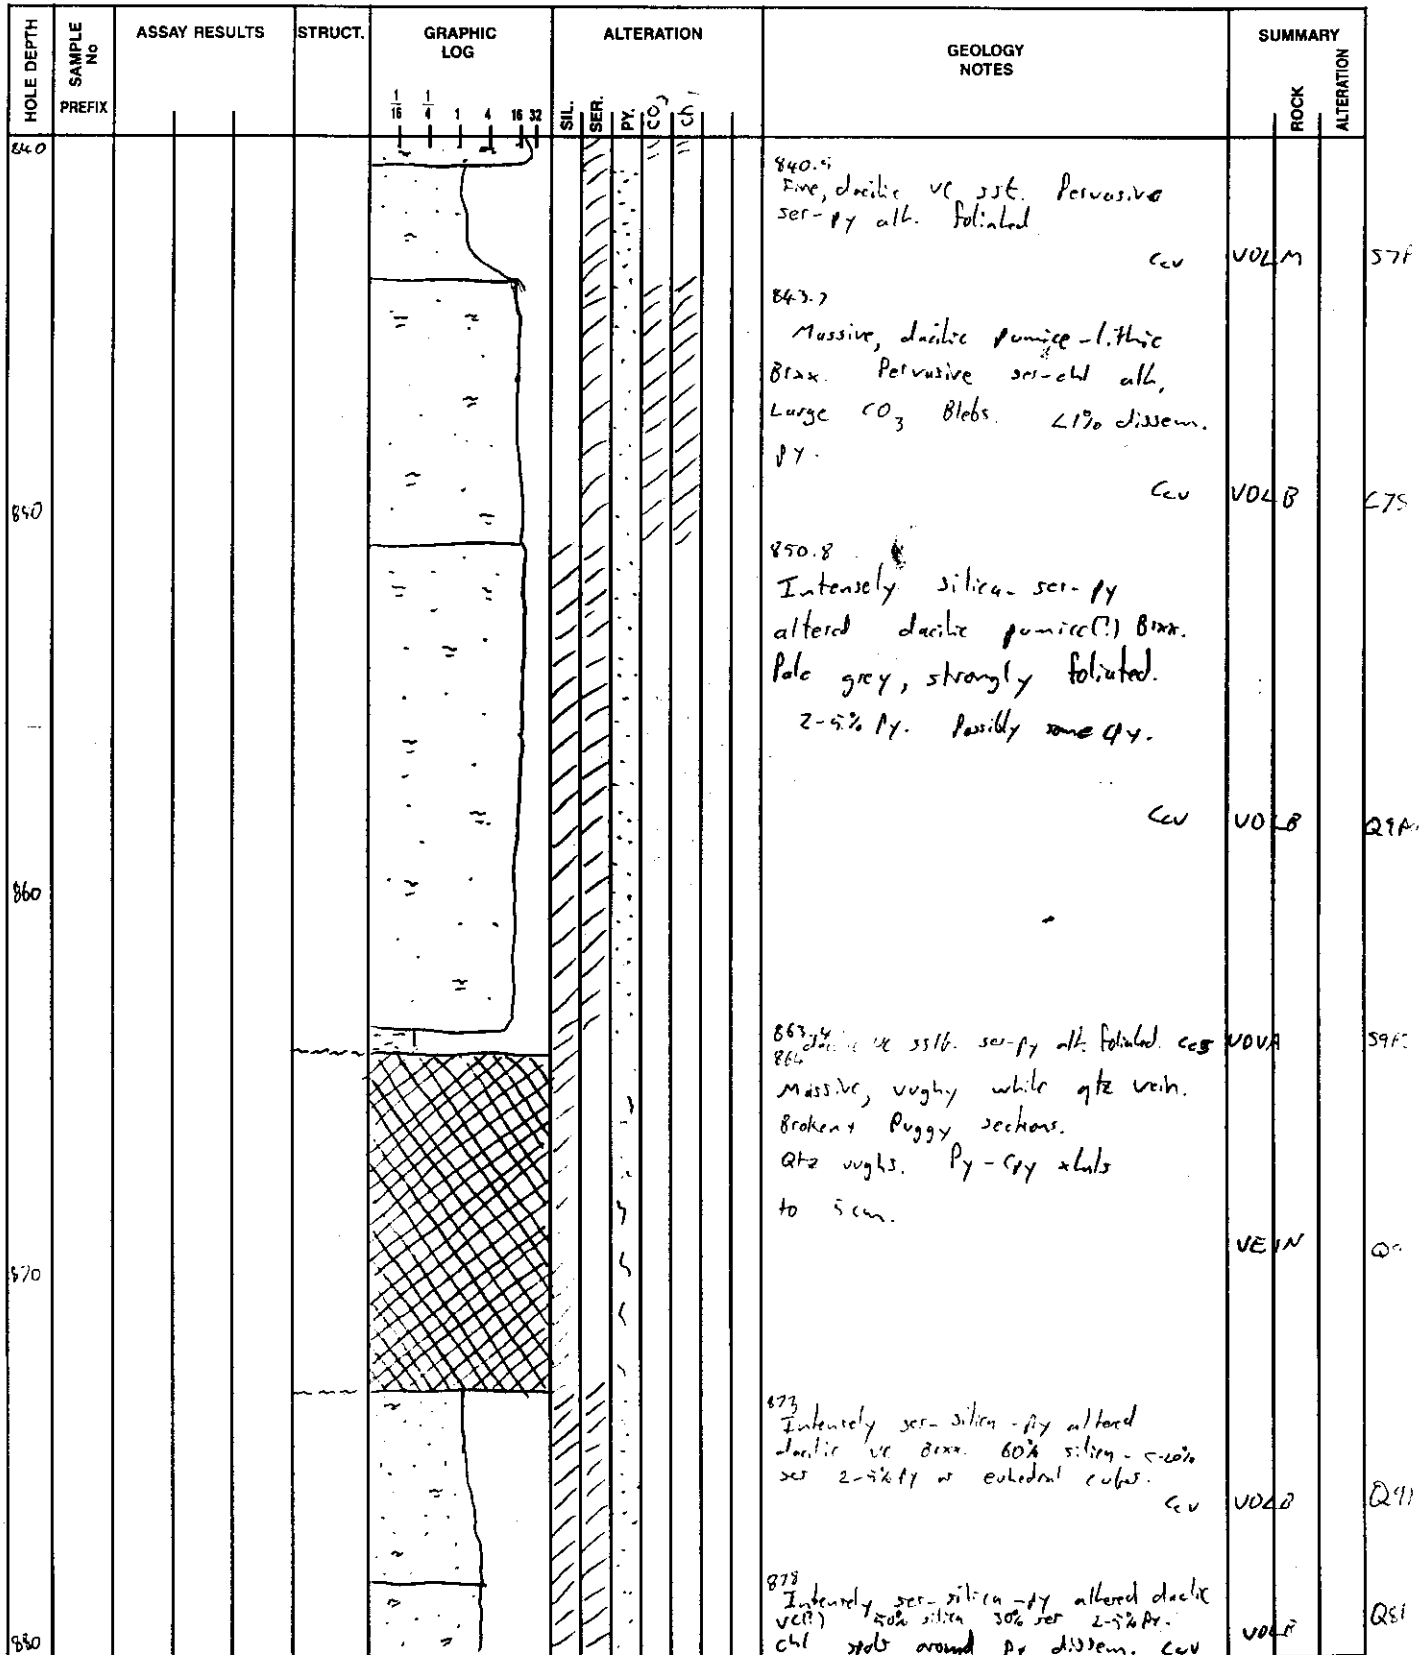 HOLE DEPTH
SAMPLE No
PREFIX
ASSAY RESULTS
STRUCT.
GRAPHIC
LOG
1/16 1/4 1 4 16 32
ALTERATION
SIL. SER. PY. CO3
GEOLOGY
NOTES
SUMMARY
ROCK
ALTERATION
840
840.5
Fine, dacitic vc sst. Pervasive
ser-py alt. foliated
Ccv VOLM
843.7
Massive, dacitic pumice-lithic
Brxx. Pervasive ser-chl alt,
Large CO3 Blebs. <1% dissem.
py.
Ccv VOLB
850
850.8
Intensely silica-ser-py
altered dacitic pumice(?) Brxx.
Pale grey, strongly foliated.
2-5% Py. Possibly some cpy.
Ccv VOLB
860
863.4 vc sslt. ser-py alt. foliated. VOVA
864
Massive, vughy white qtz vein.
Broken + Puggy sections.
Qtz vughs. Py-Cpy xtals
to 5cm.
VEIN
870
873
Intensely ser-silica-py altered
dacitic vc Brxx. 60% silica
ser 2-5% Py as euhedral cubes.
Ccv VOLB
878
Intensely ser-silica-py altered dacitic
vc(?) 50% silica 30% ser 2-5% Py.
chl spots around Py dissem. Ccv
880